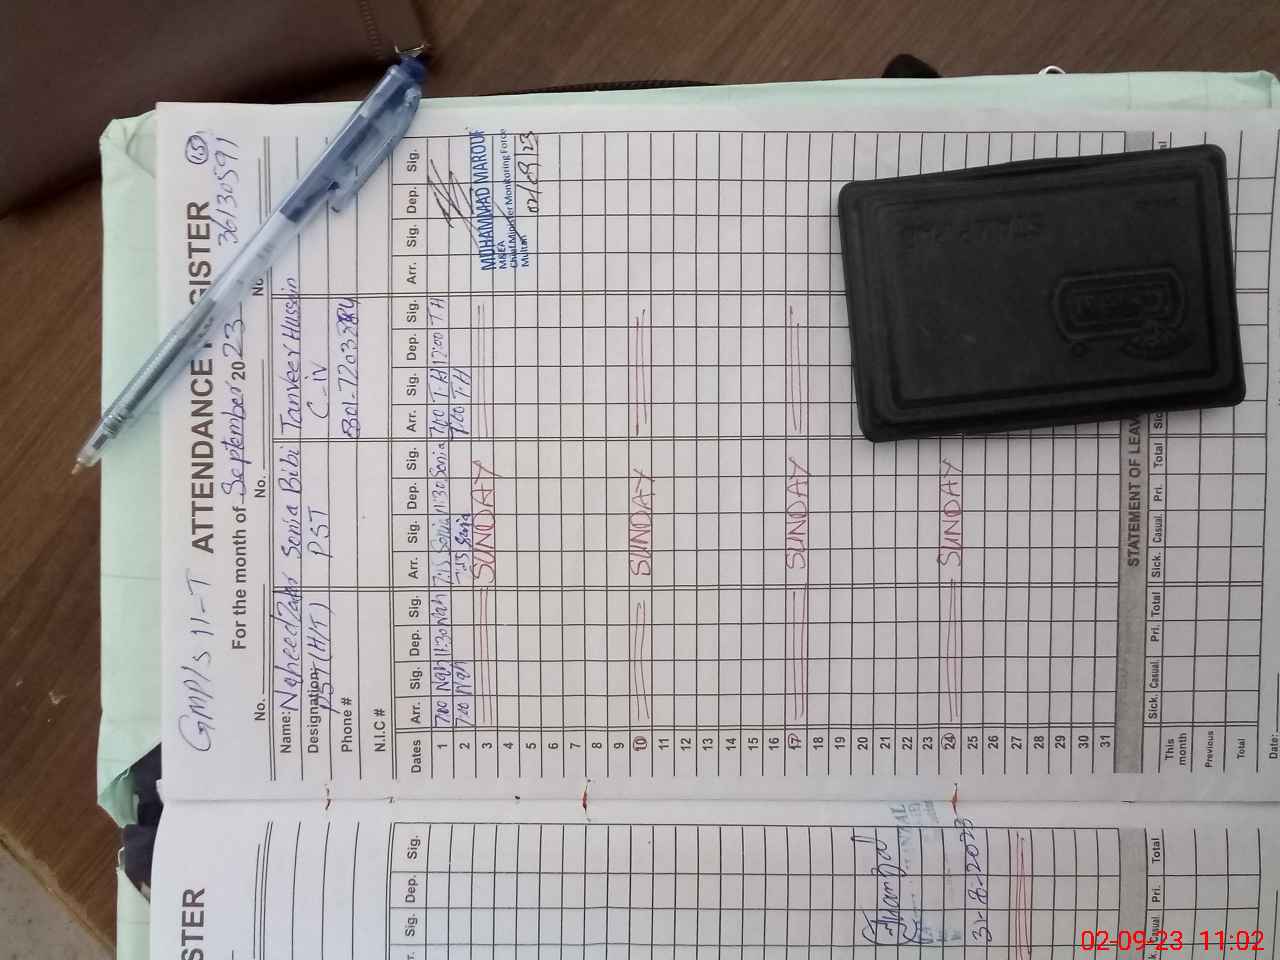 GMP/S 11-T ATTENDANCE REGISTER 15
For the month of September 2023 36130591
No. No. No.
Name: Naheed Sonia Bibi Tanveer Hussain
Designation: PST (H/T) PST C-iv
Phone # 301-7203384
N.I.C #
Dates Arr. Sig. Dep. Sig. Arr. Sig. Dep. Sig. Arr. Sig. Dep. Sig. Arr. Sig. Dep. Sig.
1 7:00 Nah 11:30 Nah 7:15 Sonia 11:30 Sonia 7:00 T.H 12:00 T.H
2 7:00 Nah 7:15 Sonia 7:00 T.H
3 SUNDAY
MUHAMMAD MAROUF
M&EA
Chief Minister Monitoring Force
Multan
02/09/23
4
5
6
7
8
9
10 SUNDAY
11
12
13
14
15
16
17 SUNDAY
18
19
20
21
22
23
24 SUNDAY
25
26
27
28
29
30
31
STATEMENT OF LEAV
Sick. Casual. Pri. Total Sick. Casual. Pri. Total Sic
This month
Previous
Total
Date:
STER
Sig. Dep. Sig.
31-8-2023
Casual. Pri. Total
02-09-23 11:02